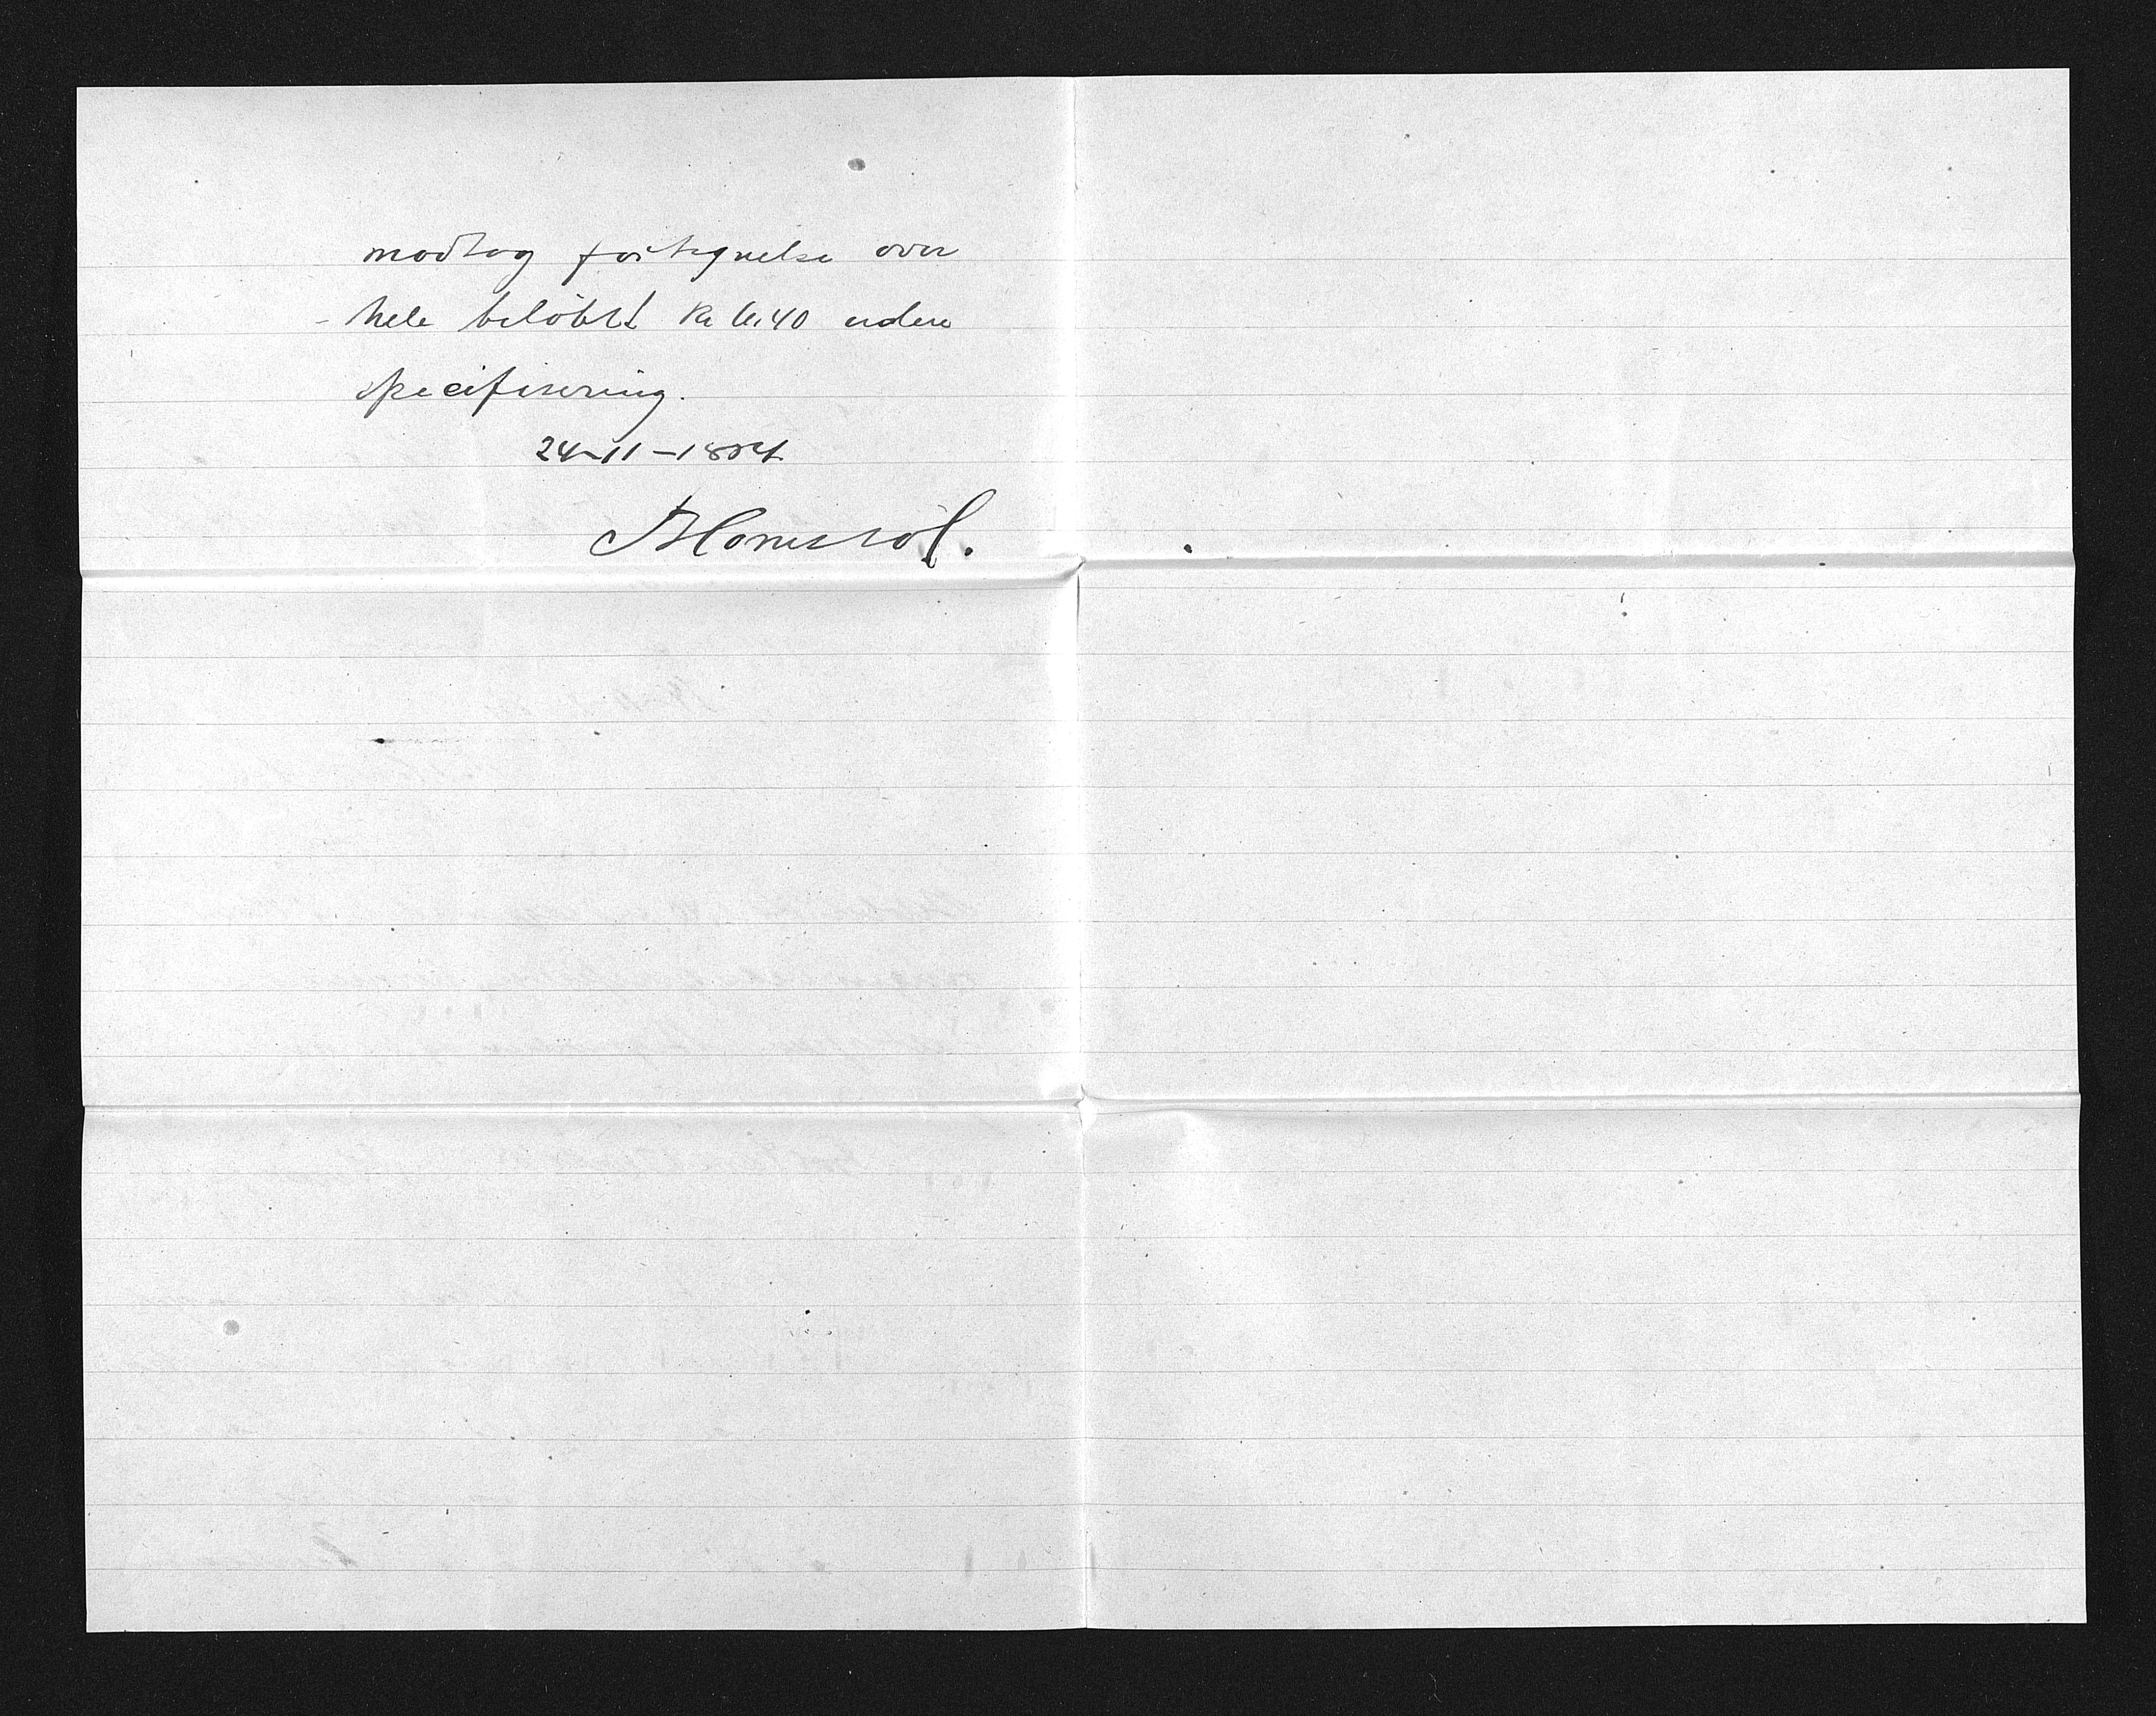 modtog fortegnelse over
hele beløbet Kr 61,40 uden
specifisering.
24-11-1894